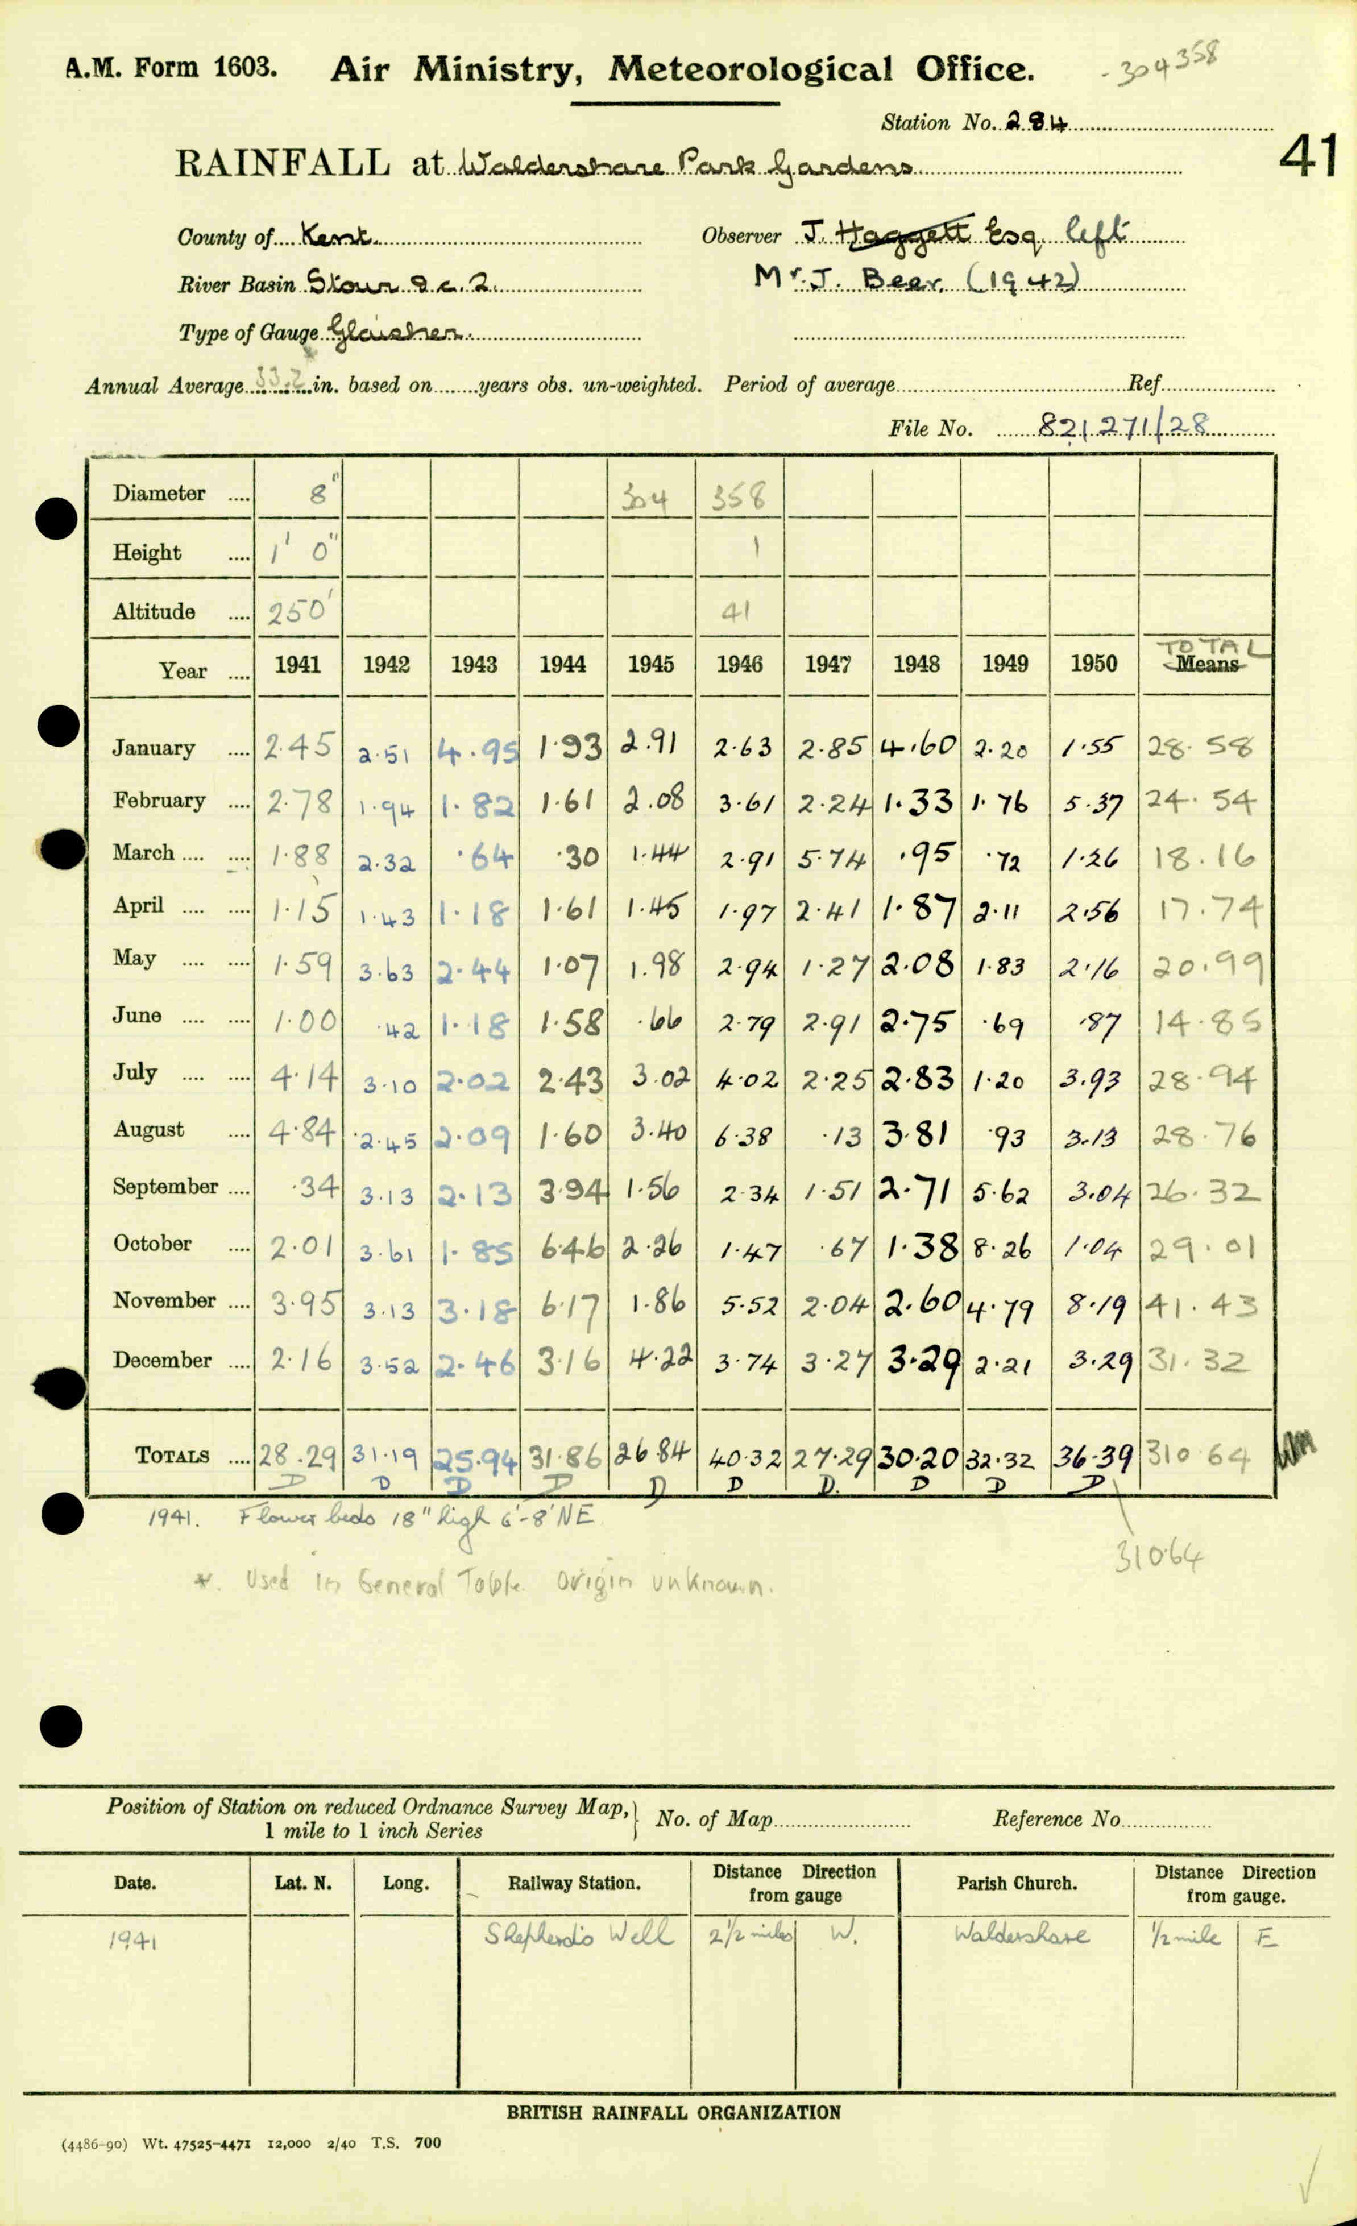 A.M. Form 1603. Air Ministry, Meteorological Office. -304358
Station No. 284
41
RAINFALL at Waldershare Park Gardens
County of Kent. Observer J. Haggett Esq. left
River Basin Stour &c. 2. Mr. J. Beer. (1942)
Type of Gauge Glaisher.
Annual Average 33.2 in. based on years obs. un-weighted. Period of average Ref.
File No. 821271/28
Diameter .... 8" 304 358
Height .... 1' 0" 1
Altitude .... 250' 41
TOTAL
Year .... 1941 1942 1943 1944 1945 1946 1947 1948 1949 1950 Means
January .... 2.45 2.51 4.95 1.93 2.91 2.63 2.85 4.60 2.20 1.55 28.58
February .... 2.78 1.94 1.82 1.61 2.08 3.61 2.24 1.33 1.76 5.37 24.54
March .... .... 1.88 2.32 .64 .30 1.44 2.91 5.74 .95 .72 1.26 18.16
April .... .... 1.15 1.43 1.18 1.61 1.45 1.97 2.41 1.87 2.11 2.56 17.74
May .... .... 1.59 3.63 2.44 1.07 1.98 2.94 1.27 2.08 1.83 2.16 20.99
June .... .... 1.00 .42 1.18 1.58 .66 2.79 2.91 2.75 .69 .87 14.85
July .... .... 4.14 3.10 2.02 2.43 3.02 4.02 2.25 2.83 1.20 3.93 28.94
August .... 4.84 2.45 2.09 1.60 3.40 6.38 .13 3.81 .93 3.13 28.76
September .... .34 3.13 2.13 3.94 1.56 2.34 1.51 2.71 5.62 3.04 26.32
October .... 2.01 3.61 1.85 6.46 2.26 1.47 .67 1.38 8.26 1.04 29.01
November .... 3.95 3.13 3.18 6.17 1.86 5.52 2.04 2.60 4.79 8.19 41.43
December .... 2.16 3.52 2.46 3.16 4.22 3.74 3.27 3.29 2.21 3.29 31.32
TOTALS .... 28.29 31.19 25.94 31.86 26.84 40.32 27.29 30.20 32.32 36.39 310.64
D D D D D D D. D D D
1941. Flower beds 18" high 6'-8' NE
310.64
*. Used in General Table. Origin unknown.
Position of Station on reduced Ordnance Survey Map, No. of Map Reference No.
1 mile to 1 inch Series
Date. Lat. N. Long. Railway Station. Distance Direction from gauge Parish Church. Distance Direction from gauge.
1941 Shepherd's Well 2 1/2 miles W. Waldershare 1/2 mile E
BRITISH RAINFALL ORGANIZATION
(4486-90) Wt. 47525-4471 12,000 2/40 T.S. 700